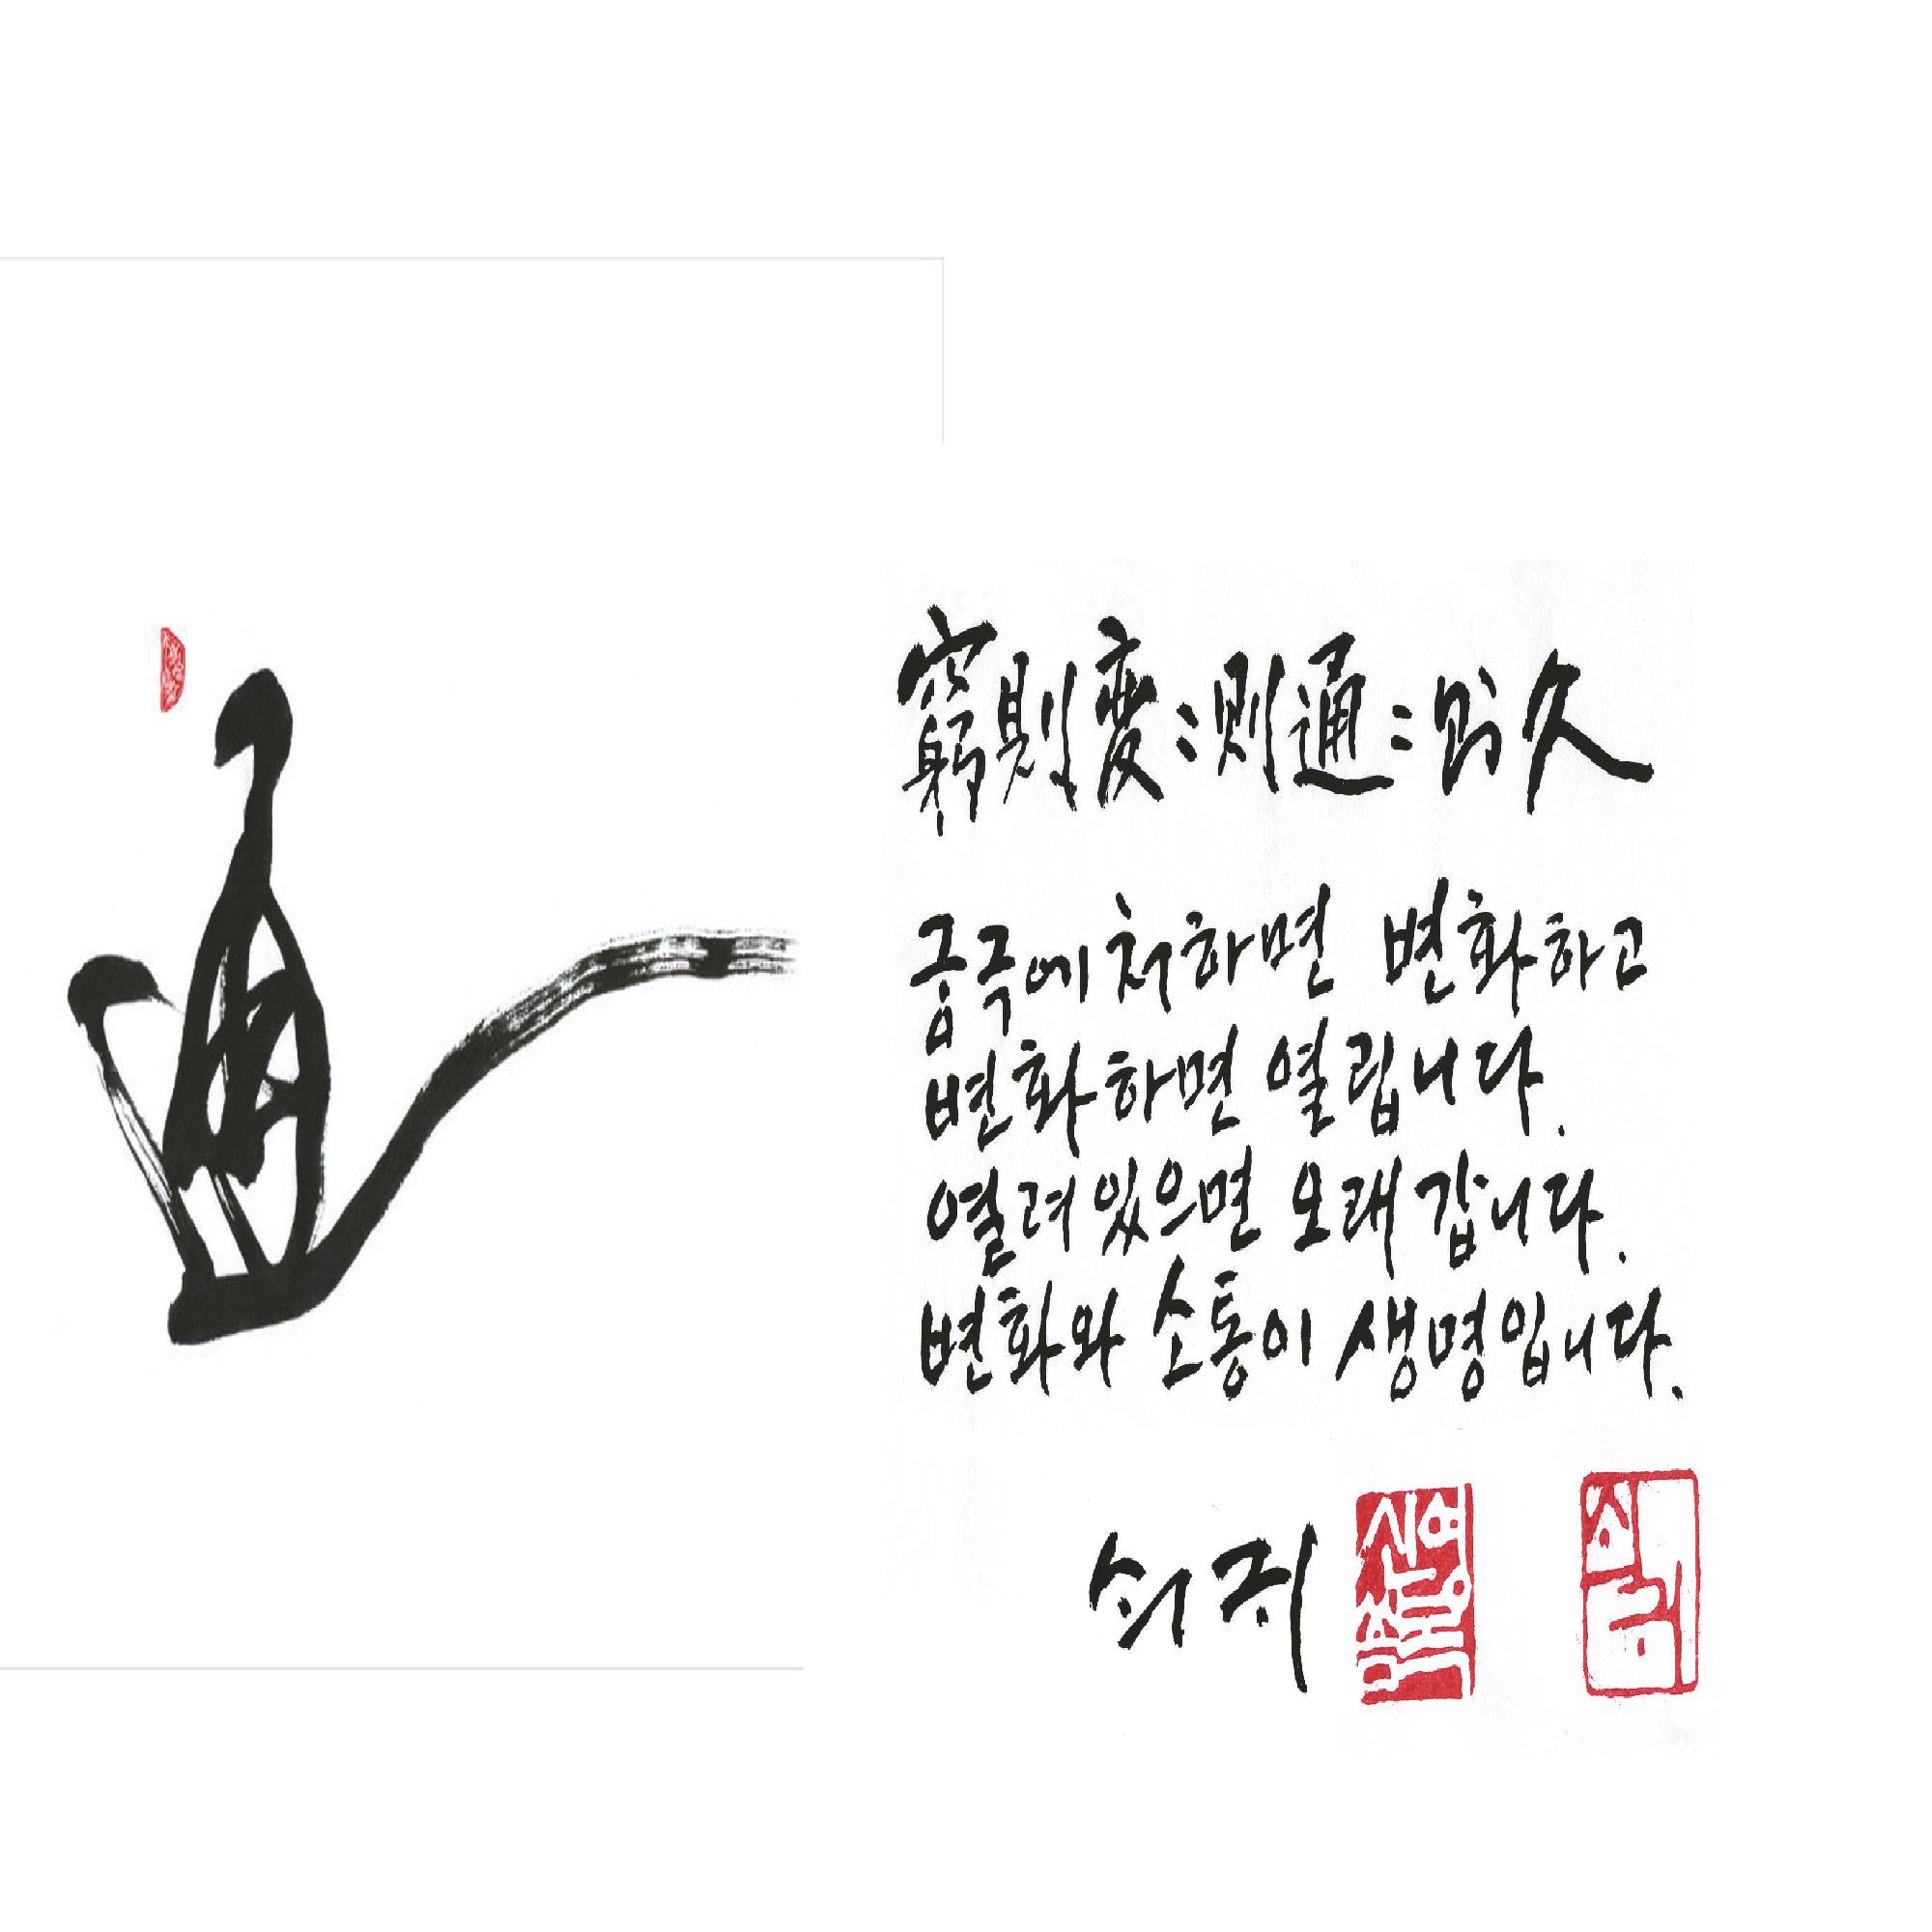 通
窮則変〻則通〻則久
궁극에 처하면 변화하고
변화하면 열립니다.
열려있으면 오래 갑니다.
변화와 소통이 생명입니다.
쇠귀